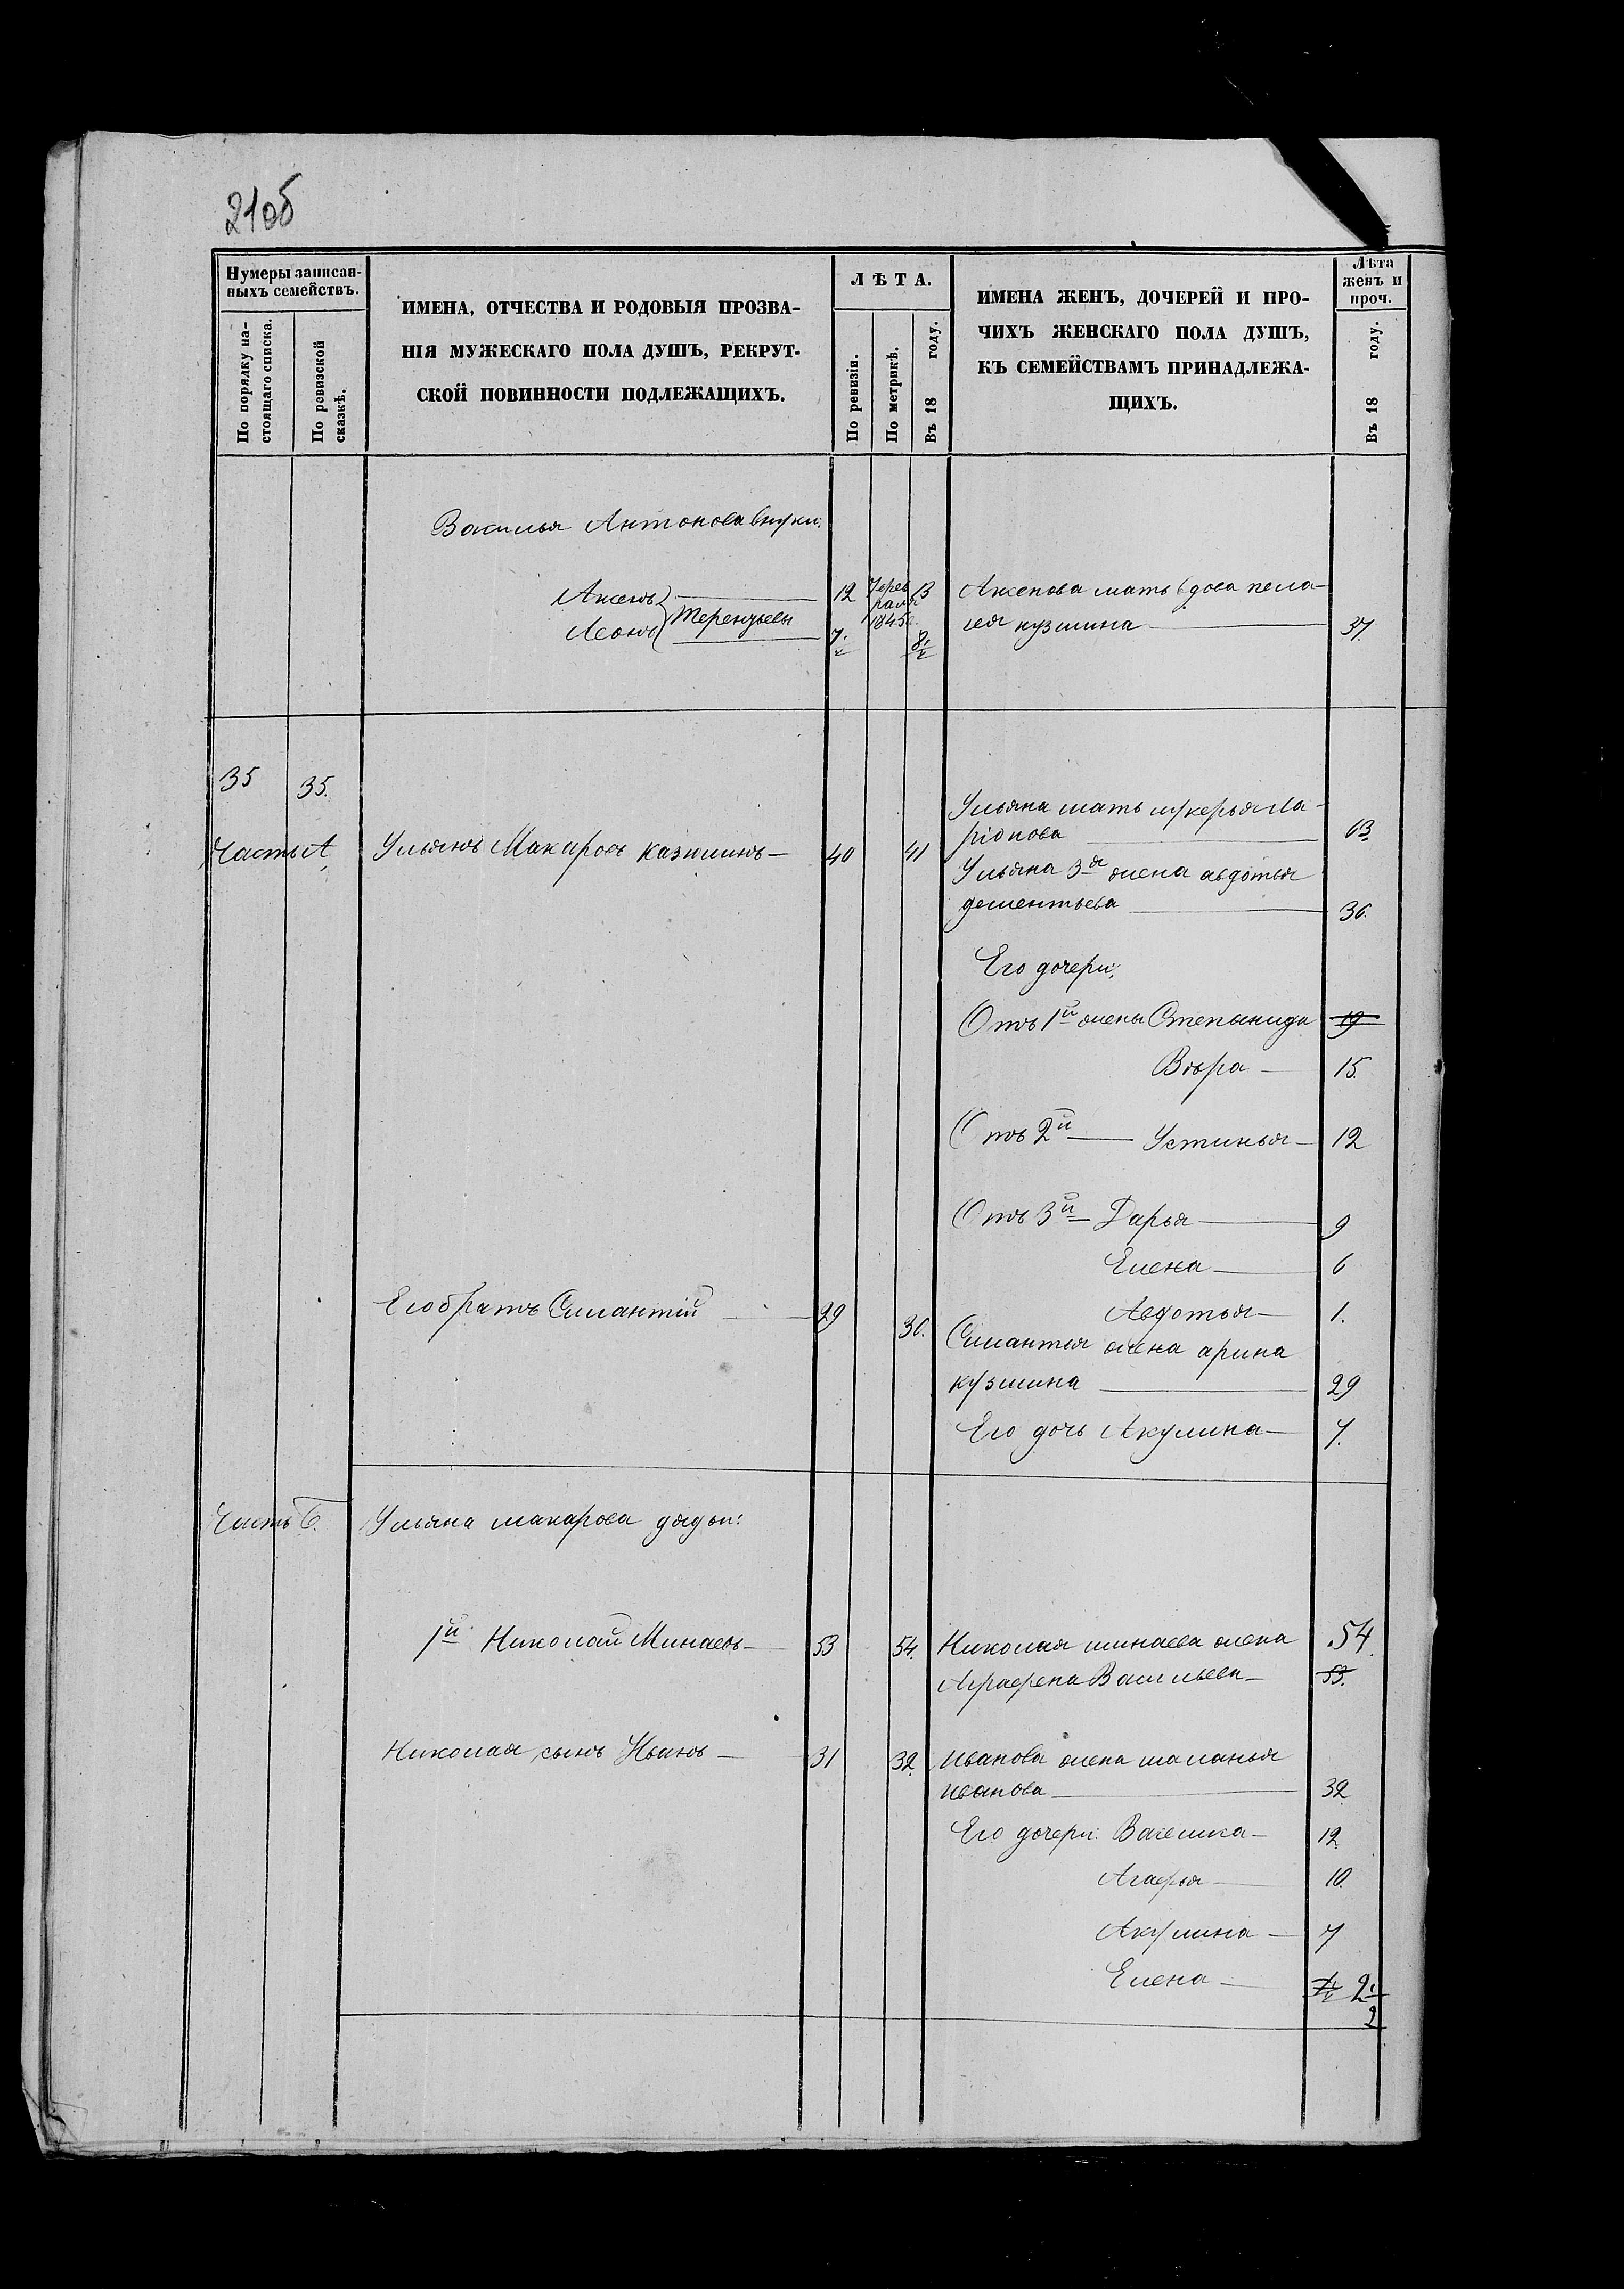 21об
Нумеры записан-
ныхъ семействъ.
По порядку на-
стоящаго списка.
По ревизской
сказкѣ.
ИМЕНА, ОТЧЕСТВА И РОДОВЫЯ ПРОЗВА-
НІЯ МУЖЕСКАГО ПОЛА ДУШЪ, РЕКРУТ-
СКОЙ ПОВИННОСТИ ПОДЛЕЖАЩИХЪ.
ЛѢТА.
По ревизіи.
По метрикѣ.
Въ 18 году.
ИМЕНА ЖЕНЪ, ДОЧЕРЕЙ И ПРО-
ЧИХЪ ЖЕНСКАГО ПОЛА ДУШЪ,
КЪ СЕМЕЙСТВАМЪ ПРИНАДЛЕЖА-
ЩИХЪ.
Лѣта
женъ и
проч.
Въ 18 году.
Василья Антонова внуки:
Аксенъ 12 13
Терентьевы
Леонъ
1845
Аксенова мать вдова пела-
гея кузмина 37
35 35.
Часть А Ульянъ Макаровъ Казюминъ 40 41
Ульяна мать лукерья Ла-
ріонова 63
Ульяна 3я жена авдотья
дементьева 36.
Его дочери:
Отъ 1й жены Степанида 19
Вѣра 15.
Отъ 2й Устинья 12
Отъ 3й Дарья 9
Елена 6
Авдотья 1.
Его братъ Силантій 29 30.
Силантья жена арина
кузмина 29
Его дочь Акулина 7.
Часть Б. Ульяна макарова дядьи:
1й Николай Минаевъ 53 54.
Николая минаева жена 54.
Аграфена Васильева 53.
Николая сынъ Иванъ 31 32.
Иванова жена маланья
иванова 32
Его дочери: 12.
Агафья 10.
Акулина 7
Елена 2 1/2